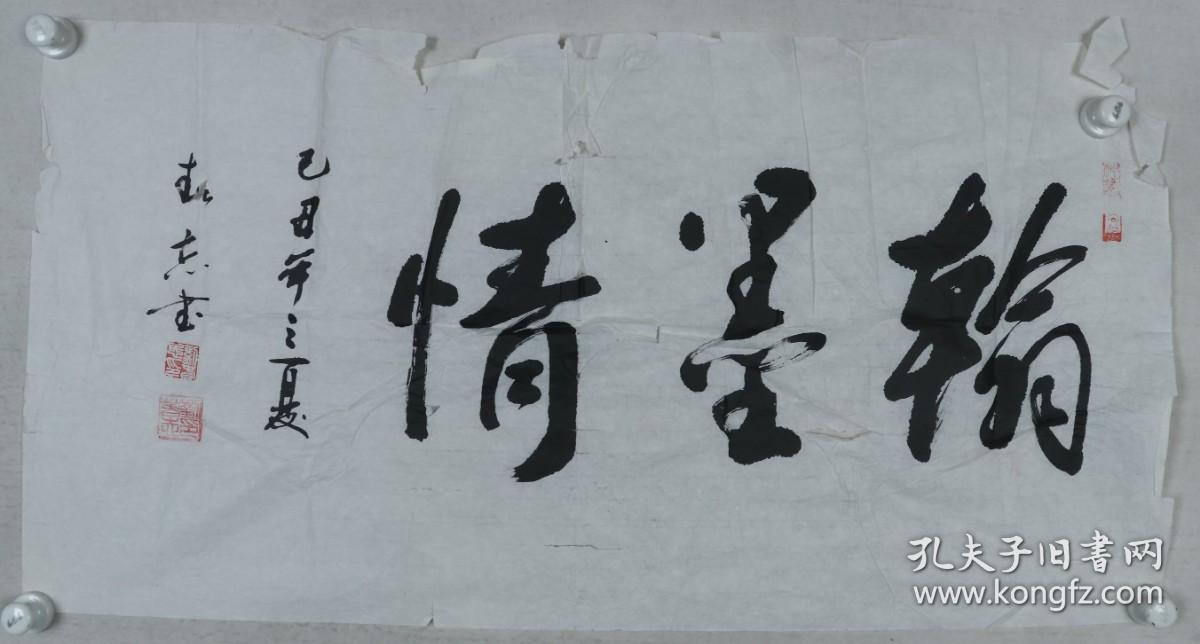 翰墨情
己丑年之夏
志书
孔夫子旧書网
www.kongfz.com